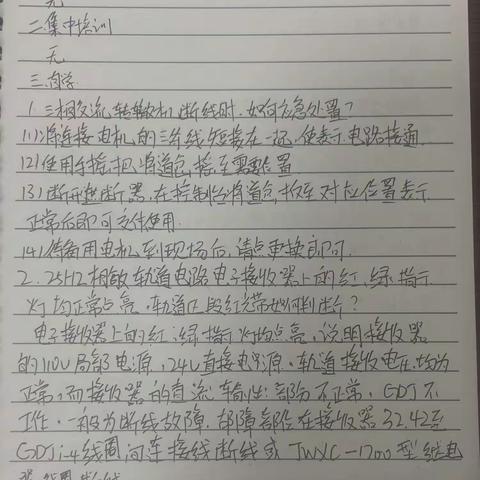 无
二.集中培训
无
三.自学
1.三相交流转辙机断线时,如何应急处置?
(1)将连接电机的三条线短接在一起,使表示电路接通.
(2)使用手摇把将道岔摇至需要位置
(3)断开遮断器,在控制台将道岔扳至对应位置表示
正常后即可交付使用.
(4)待备用电机到现场后,请点更换即可.
2.25HZ相敏轨道电路电子接收器上的红,绿指示
灯均正常点亮,轨道区段红光带如何判断?
电子接收器上的红.绿指示灯均点亮,说明接收器
的110V局部电源,24V直接电源.轨道接收电压均为
正常,而接收器的直流输出部份不正常,GDJ不
工作.一般为断线故障.故障部位在接收器32.42至
GDJ1-4线圈间连接线断线或JWXC-1700型继电
器线圈断线